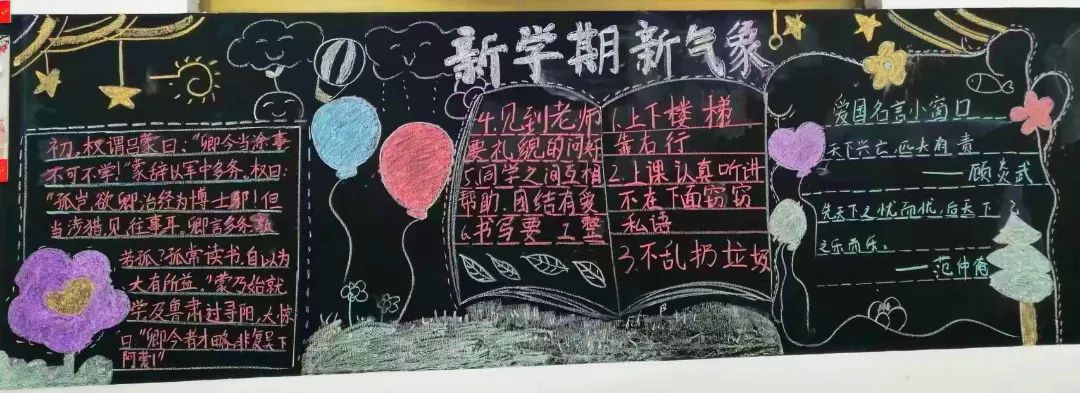 新学期新气象
初，权谓吕蒙曰："卿今当涂事
不可不学！"蒙辞以军中多务，权曰：
"孤岂欲卿治经为博士耶！但
当涉猎，见往事耳。卿言多务，孰
若孤？孤常读书，自以为
大有所益。"蒙乃始就
学及鲁肃过寻阳，大惊
曰"卿今者才略，非复吴下
阿蒙！"
1.上下楼梯
靠右行
2.上课认真听讲
不在下面窃窃
私语
3.不乱扔垃圾
4.见到老师
要礼貌的问好
5.同学之间互相
帮助，团结有爱
6.书写要工整
爱国名言小窗口
天下兴亡，匹夫有责
——顾炎武
先天下之忧而忧，后天下
之乐而乐。
——范仲淹